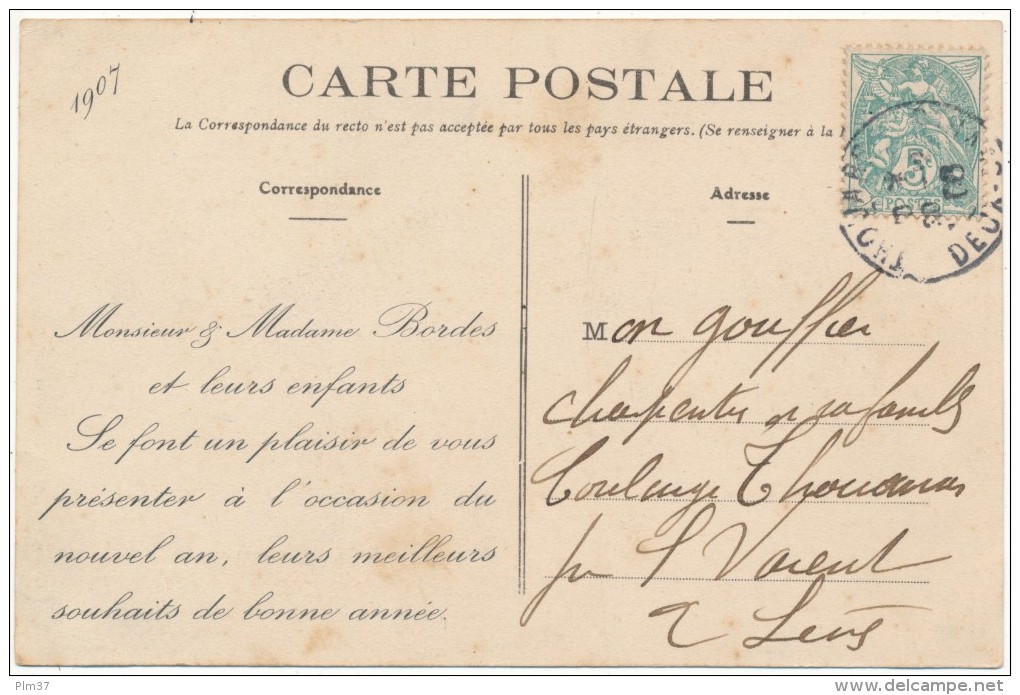 1907
CARTE POSTALE
La Correspondance du recto n'est pas acceptée par tous les pays étrangers. (Se renseigner à la
Correspondance
Adresse
5
POSTES
THOUARS
DEUX-S
Monsieur & Madame Bordes
et leurs enfants
Se font un plaisir de vous
présenter à l'occasion du
nouvel an, leurs meilleurs
souhaits de bonne année.
Mon gouffier
charpentier et sa famille
Coulonge Thouarsais
par St Varent
2 Sèvres
Plm37
delcampe.net